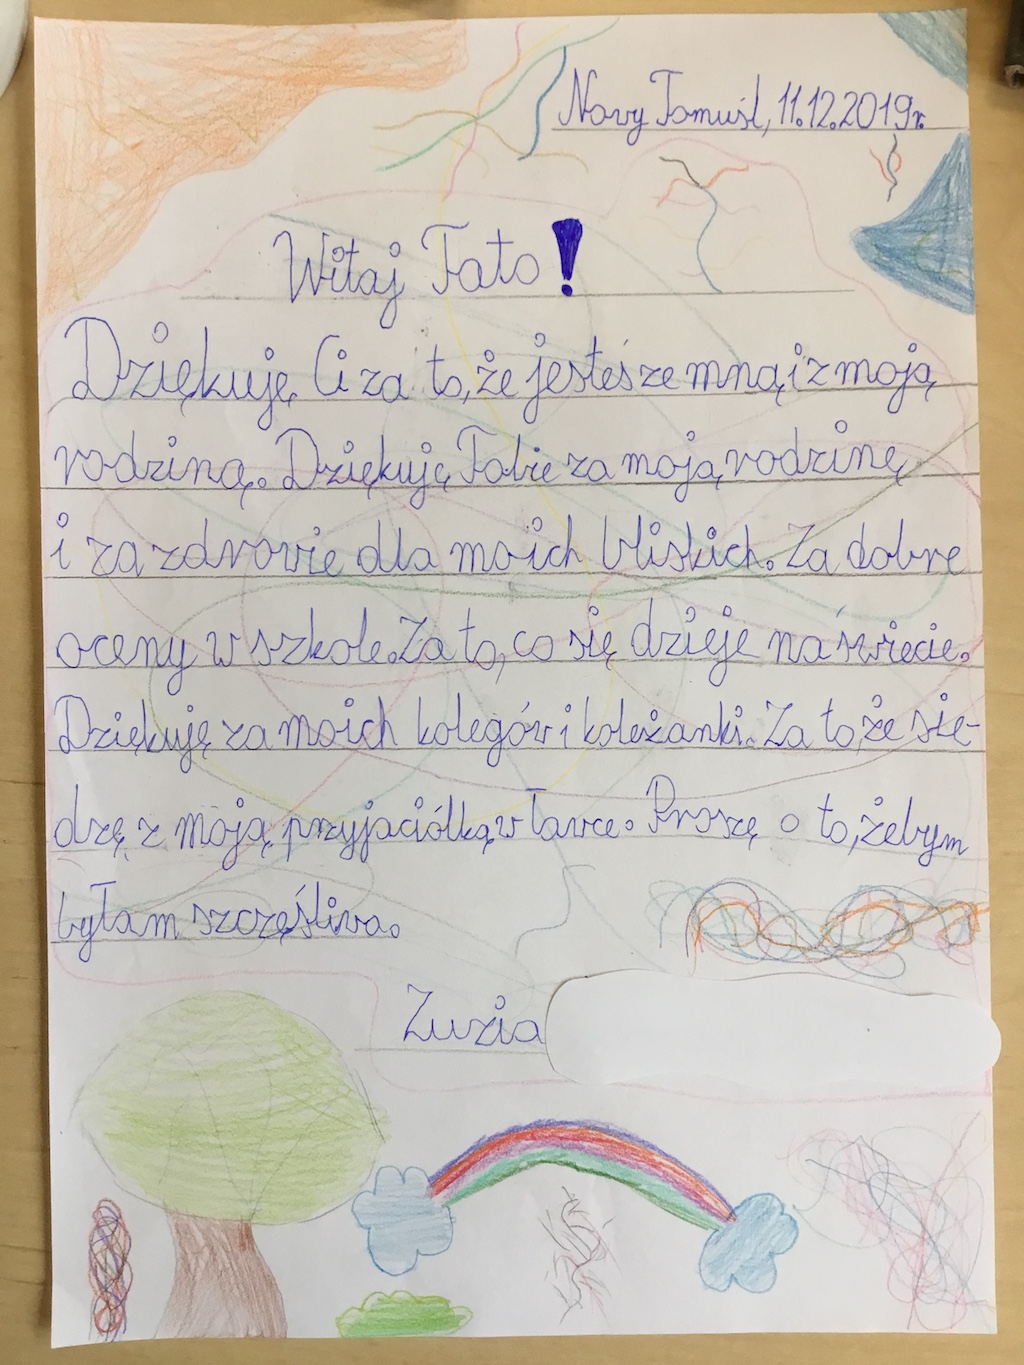 Nowy Tomuśl, 11.12.2019r.
Witaj Tato!
Dziękuję Ci za to, że jesteś ze mną i z moją
rodziną. Dziękuję Tobie za moją rodzinę
i za zdrowie dla moich bliskich. Za dobre
oceny w szkole. Za to, co się dzieje na świecie.
Dziękuję za moich kolegów i koleżanki. Za to, że sie-
dzę z moją przyjaciółką w ławce. Proszę o to, żebym
byłam szczęśliwa.
Zuzia